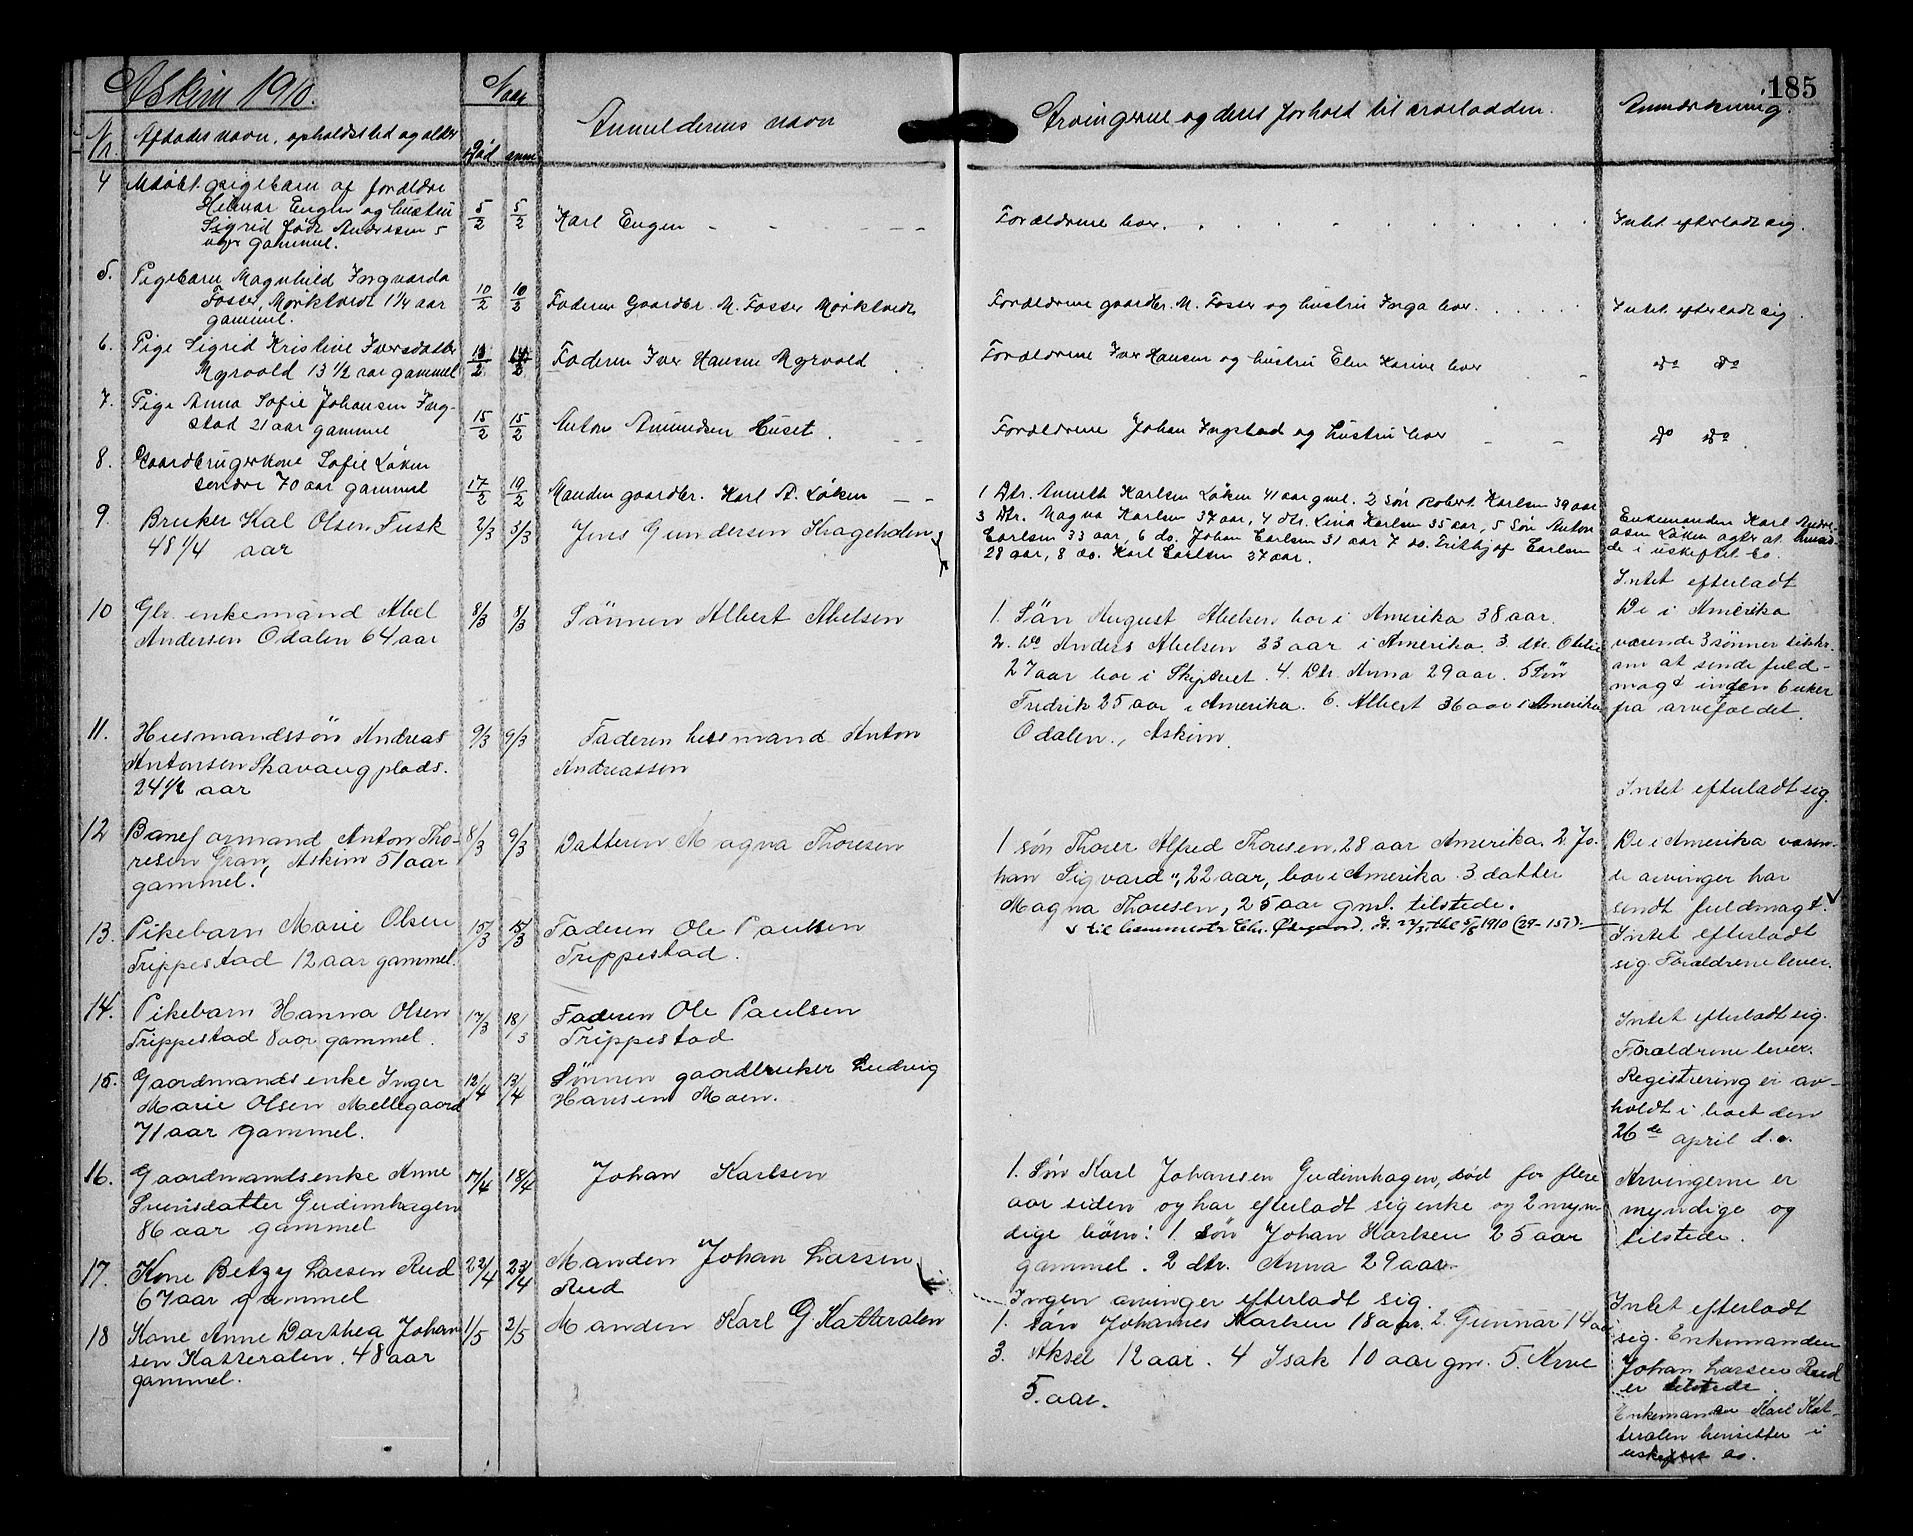 Askim 1910.
Naar
185
Nr. Afdødes navn, opholdssted og alder
Død
Anmelderens navn
Arvingerne og deres forhold til arveladden.
Anmerkning.
4 Udøbt pigebarn af forældre
Hilmar Engen og hustru
Sigrid født Andersen 5
uger gammel.
5/2 5/2 Karl Engen
Forældrene lever.
Intet efterladt sig.
5. Pigebarn Magnhild Ingvarda
Fosser, Mørktvedt 1 1/4 aar
gammel.
10/2 10/2 Faderen Gaardbr. M. Fosser Mørktvedt
Forældrene gaardbr. M. Fosser og hustru Inga lever.
Intet efterladt sig.
6. Pige Sigrid Kristine Iversdatter
Myrvold 13 1/2 aar gammel
13/2 14/2 Faderen Iver Hansen Myrvold
Forældrene Iver Hansen og hustru Elen Karine lever
do do
7. Pige Anna Sofie Johansen Ing-
stad 21 aar gammel
15/2 15/2 Anton Amundsen Huset.
Forældrene Johan Ingstad og hustru lever
do do
8. Gaardbrugerkone Sofie Løken
søndre 70 aar gammel
17/2 19/2 Manden gaardbr. Karl A. Løken
1 Dtr. Annette Karlsen Løken 41 aar gml. 2 Søn Robert Karlsen 39 aar
3 Dtr. Magna Karlsen 37 aar, 4 dtr. Lina Karlsen 35 aar, 5 Søn Anton
Carlsen 33 aar, 6 do. Johan Carlsen 31 aar 7 do. Frithjof Carlsen
28 aar, 8 do. Karl Carlsen 27 aar.
Enkemanden Karl Andre-
asen Løken agter at hensid-
de i uskiftet bo.
9. Bruker Kal Olsen Fusk
48 1/4 aar
2/3 3/3 Jens Gundersen Krageholen
Intet efterladt
10 Gbr. enkemand Abel
Andersen Odalen 64 aar
8/3 8/3 Sønnen Albert Abelsen
1. Søn August Abelsen bor i Amerika 38 aar.
2. do Anders Abelsen 33 aar i Amerika. 3. dtr. Otilie
27 aar bor i Skiptvet. 4. Dtr. Anna 29 aar. 5 Søn
Fredrik 25 aar i Amerika. 6. Albert 36 aar i Amerika
Odalen, Askim.
De i Amerika
værende 3 sønner tilskr.
om at sende fuld-
magt inden 6 uker
fra arvefaldet.
11. Husmandssøn Andreas
Antonsen Skavaugplads.
24 1/2 aar
9/3 9/3 Faderen husmand Anton
Andreassen
Intet efterladt sig.
12 Baneformand Anton Tho-
resen Gran, Askim 51 aar
gammel.
8/3 9/3 Datteren Magna Thoresen
1 søn Thorer Alfred Thoresen, 28 aar Amerika. 2. Jo-
han Sigvard ", 22 aar, bor i Amerika. 3 datter
Magna Thoresen, 25 aar gml. tilstede.
De i Amerika væren-
de arvinger har
sendt fuldmagt.
13. Pikebarn Marie Olsen
Trippestad 12 aar gammel.
15/3 15/3 Faderen Ole Paulsen
Trippestad.
Intet efterladt
sig. Forældrene lever.
14. Pikebarn Hanna Olsen
Trippestad 8 aar gammel.
17/3 18/3 Faderen Ole Paulsen
Trippestad
Intet efterladt sig.
Forældrene lever.
15. Gaardmandsenke Inger
Marie Olsen Mellegaard
71 aar gammel.
12/4 13/4 Sønnen gaardbruker Ludvig
Hansen Moen.
Registrering er av-
holdt i boet den
26de april d.a.
16. Gaardmandsenke Anne
Svensdatter Gudimhagen
86 aar gammel
17/4 18/4 Johan Karlsen
1. Søn Karl Johansen Gudimhagen, død for flere
aar siden og har efterladt sig enke og 2 myn-
dige børn: 1. søn Johan Karlsen 25 aar
gammel. 2 dtr. Anna 29 aar.
Arvingerne er
myndige og
tilstede.
17. Kone Betzy Larsen Rud
67 aar gammel
22/4 23/4 Manden Johan Larsen
Rud
Ingen arvinger efterladt sig.
Intet efterladt
sig. Enkemanden
Johan Larsen Rud
er tilstede.
18 Kone Anne Dorthea Johan
sen Katteralen. 48 aar
gammel.
1/5 2/5 Manden Karl G. Katteralen
1. Søn Johannes Karlsen 18 aar. 2. Gunnar 14 aar
3. Aksel 12 aar. 4 Isak 10 aar gm. 5. Arne
5. aar.
Enkemanden Karl Kat-
teralen hensitter i
uskiftet bo.